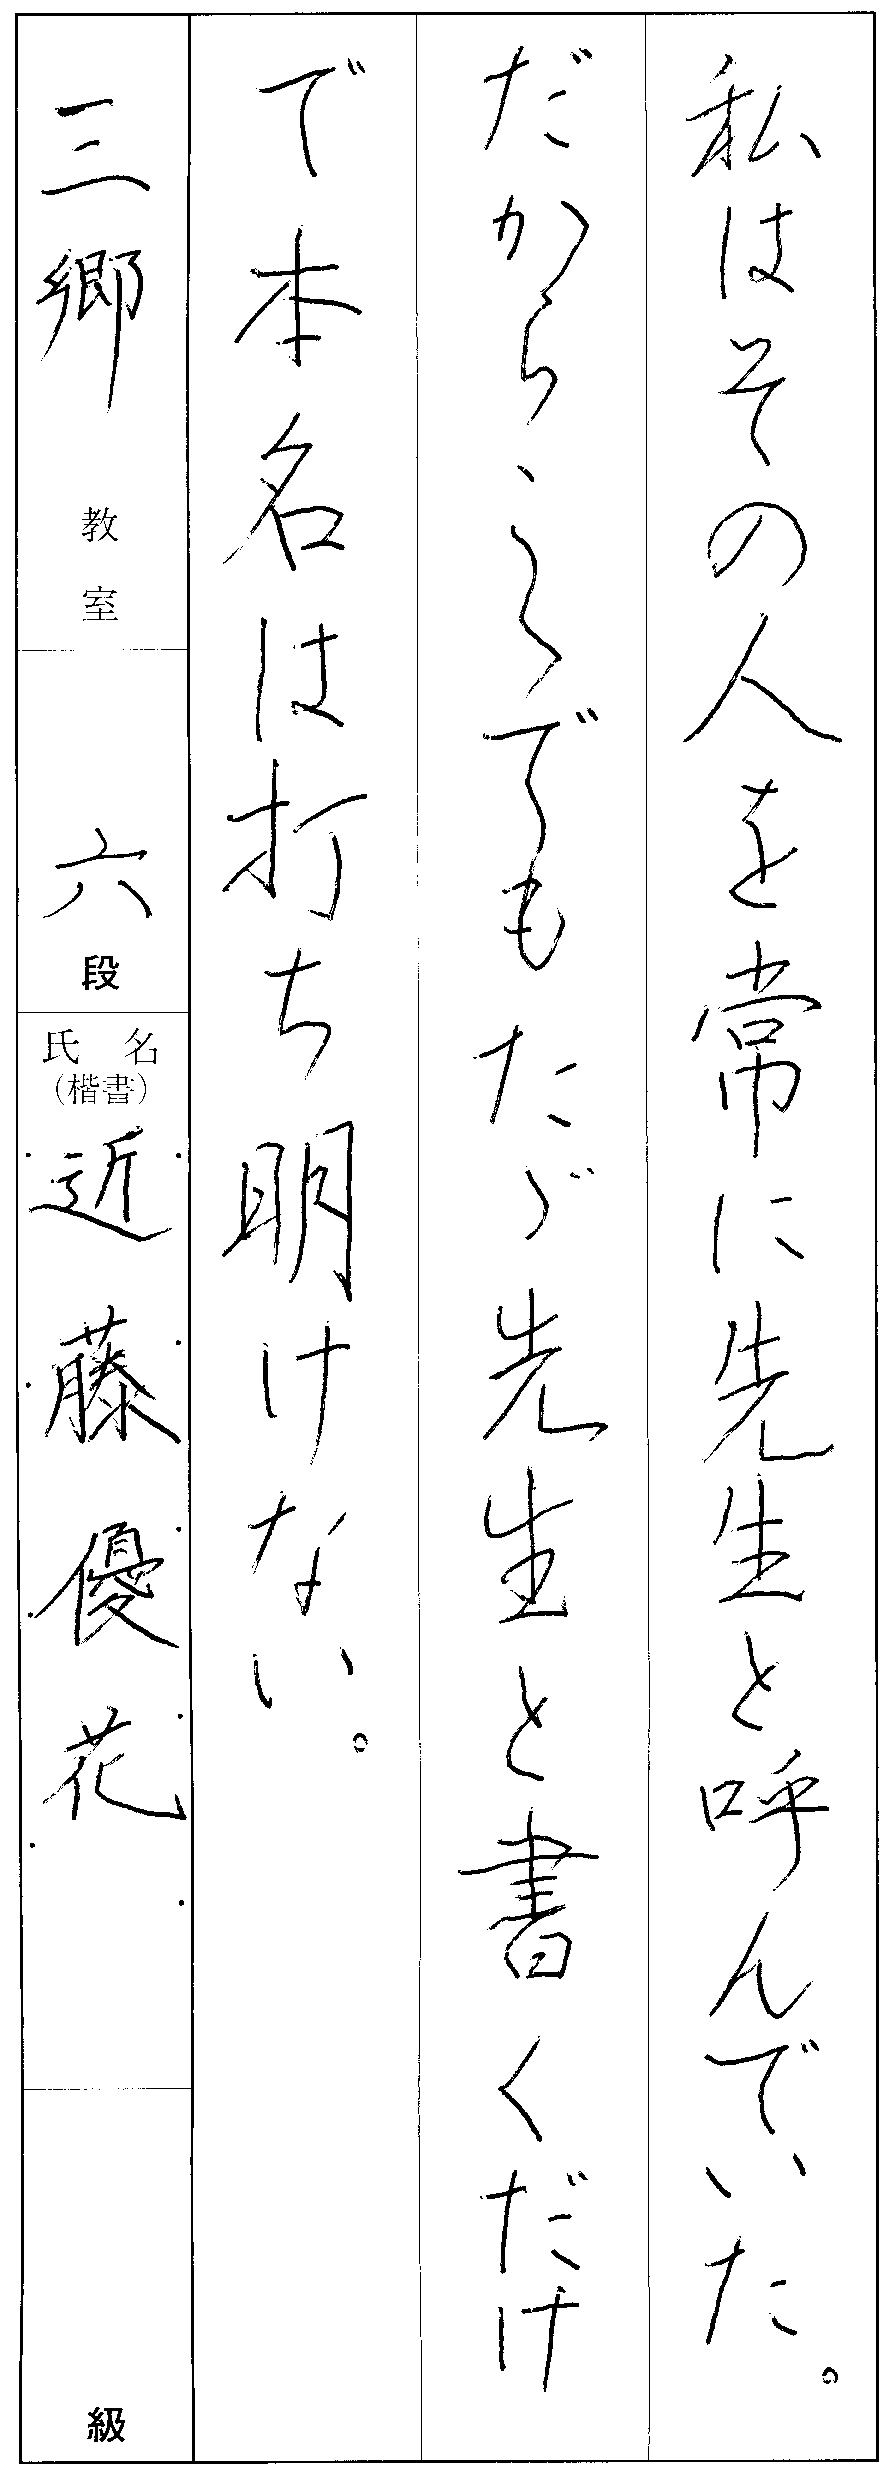 私はその人を常に先生と呼んでいた。
だからこゝでもたゞ先生と書くだけ
で本名は打ち明けない。
三郷教室
六段
氏名
(楷書)
近藤優花
級